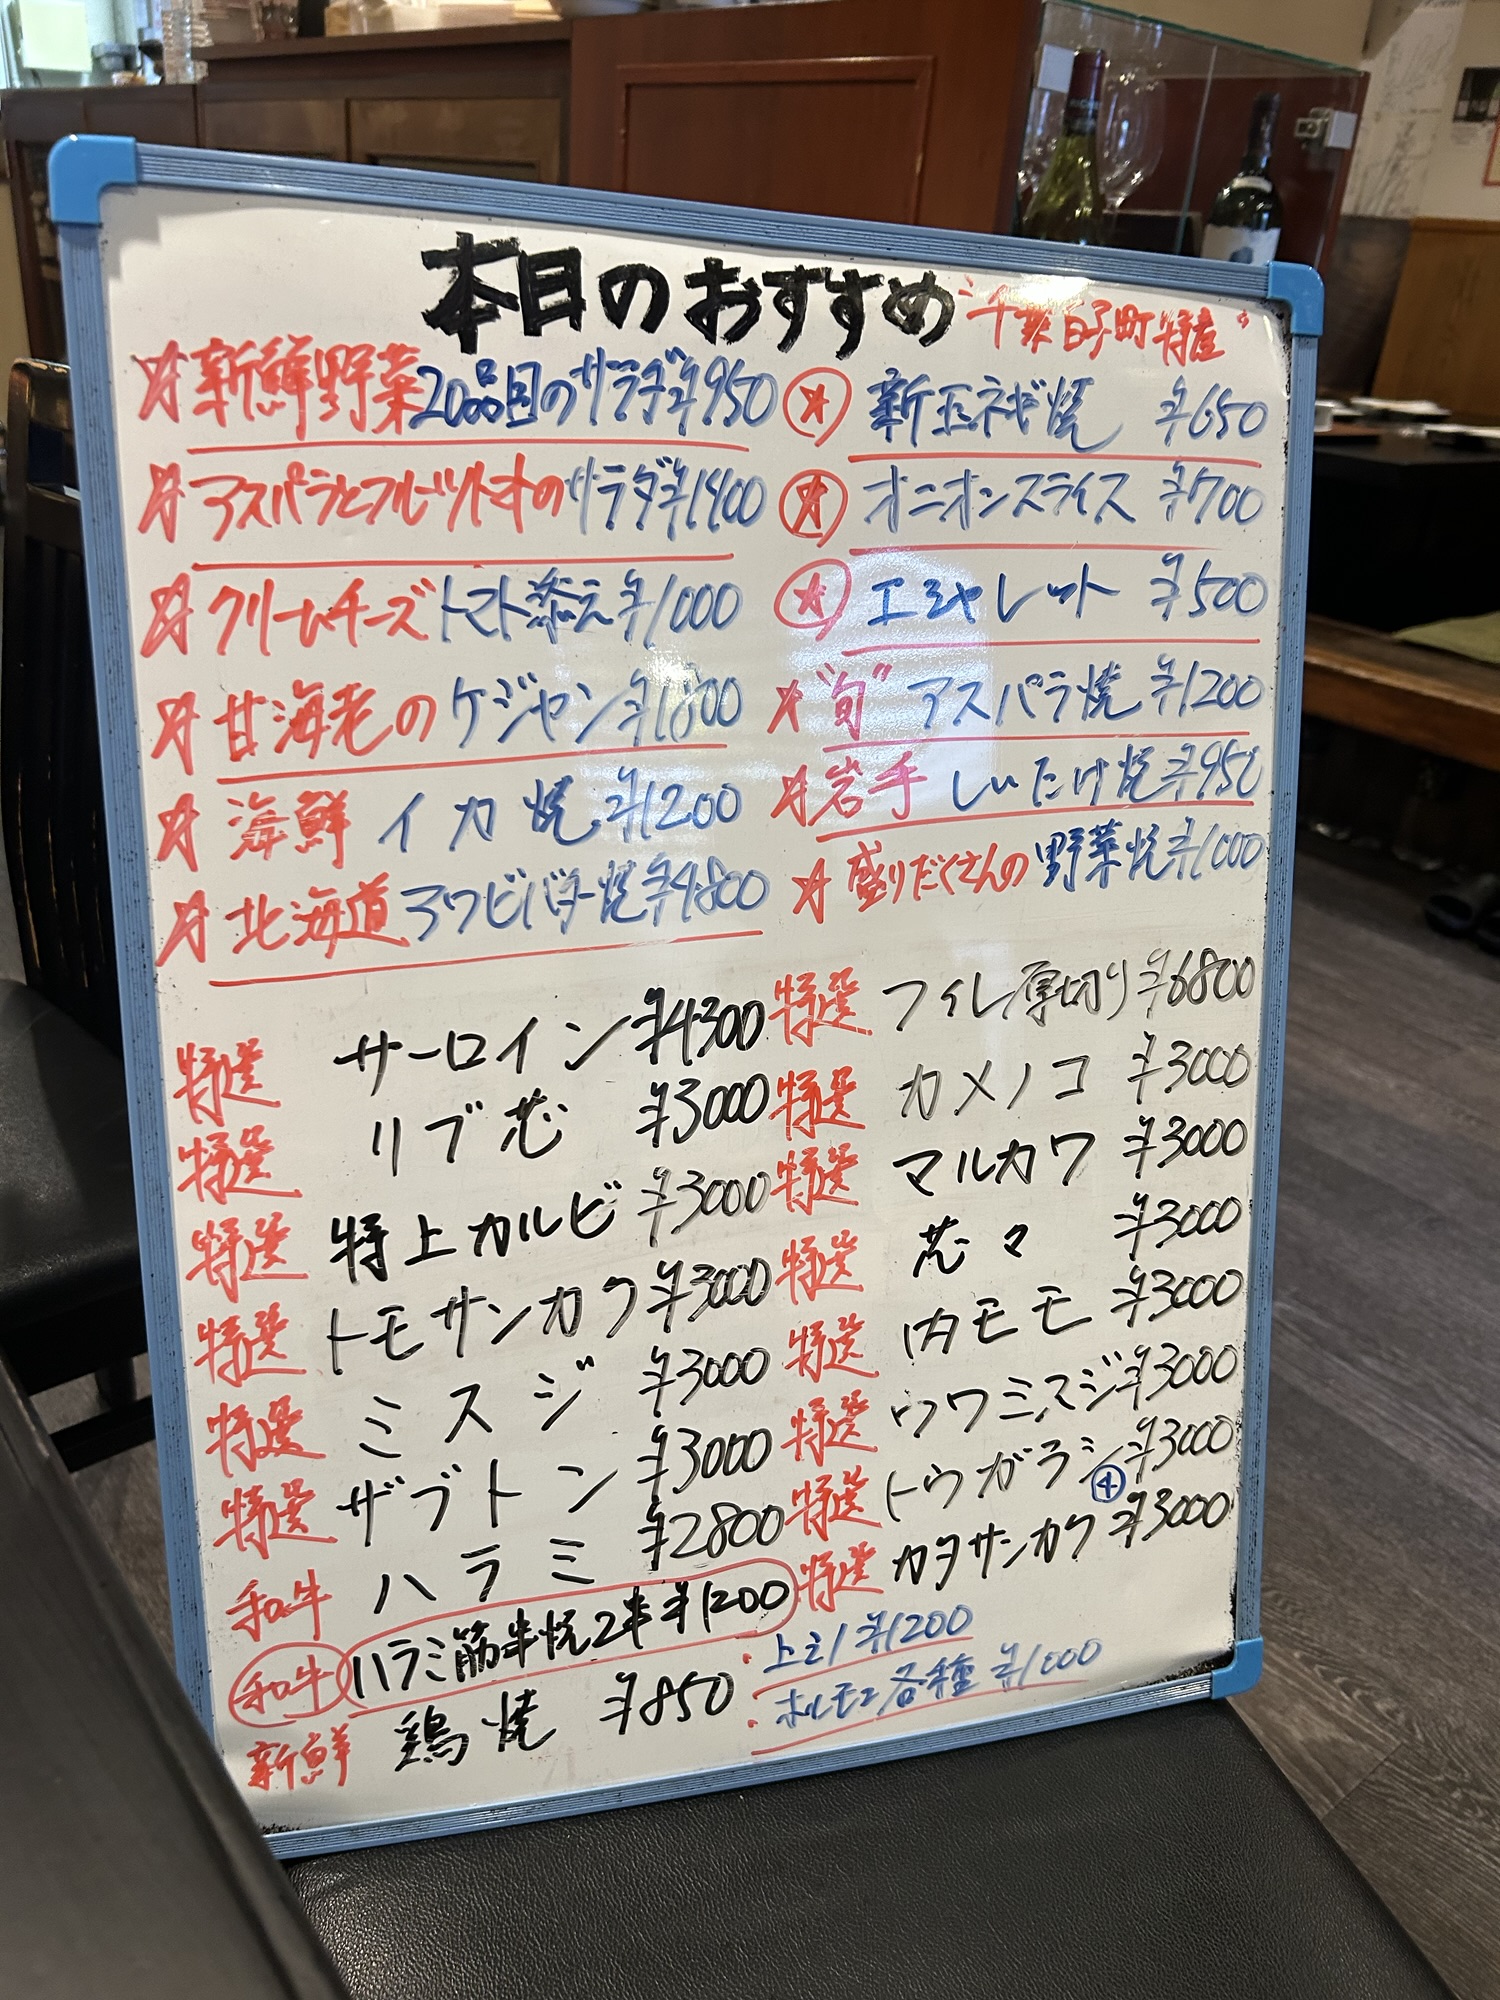 本日のおすすめ
"千葉白子町特産"
☆新鮮野菜20品目のサラダ¥950
☆アスパラとフルーツトマトのサラダ¥1400
☆クリームチーズトマト添え¥1000
☆甘海老のケジャン¥1800
☆海鮮イカ焼¥1200
☆北海道アワビバター焼¥4800
☆新玉ネギ焼 ¥650
☆オニオンスライス ¥700
☆エシャレット ¥500
☆"旬"アスパラ焼¥1200
☆岩手しいたけ焼¥950
☆盛りだくさんの野菜焼¥1000
特選 サーロイン¥4300
特選 リブ芯 ¥3000
特選 特上カルビ¥3000
特選 トモサンカク¥3000
特選 ミスジ ¥3000
特選 ザブトン ¥3000
和牛 ハラミ ¥2800
和牛 ハラミ筋串焼2本¥1200
新鮮 鶏焼 ¥850
特選 フィレ厚切り¥6800
特選 カメノコ ¥3000
特選 マルカワ ¥3000
特選 芯々 ¥3000
特選 内モモ ¥3000
特選 ウワミスジ¥3000
特選 トウガラシ¥3000
④
特選 カタサンカク¥3000
・上ミノ¥1200
・ホルモン各種 ¥1000